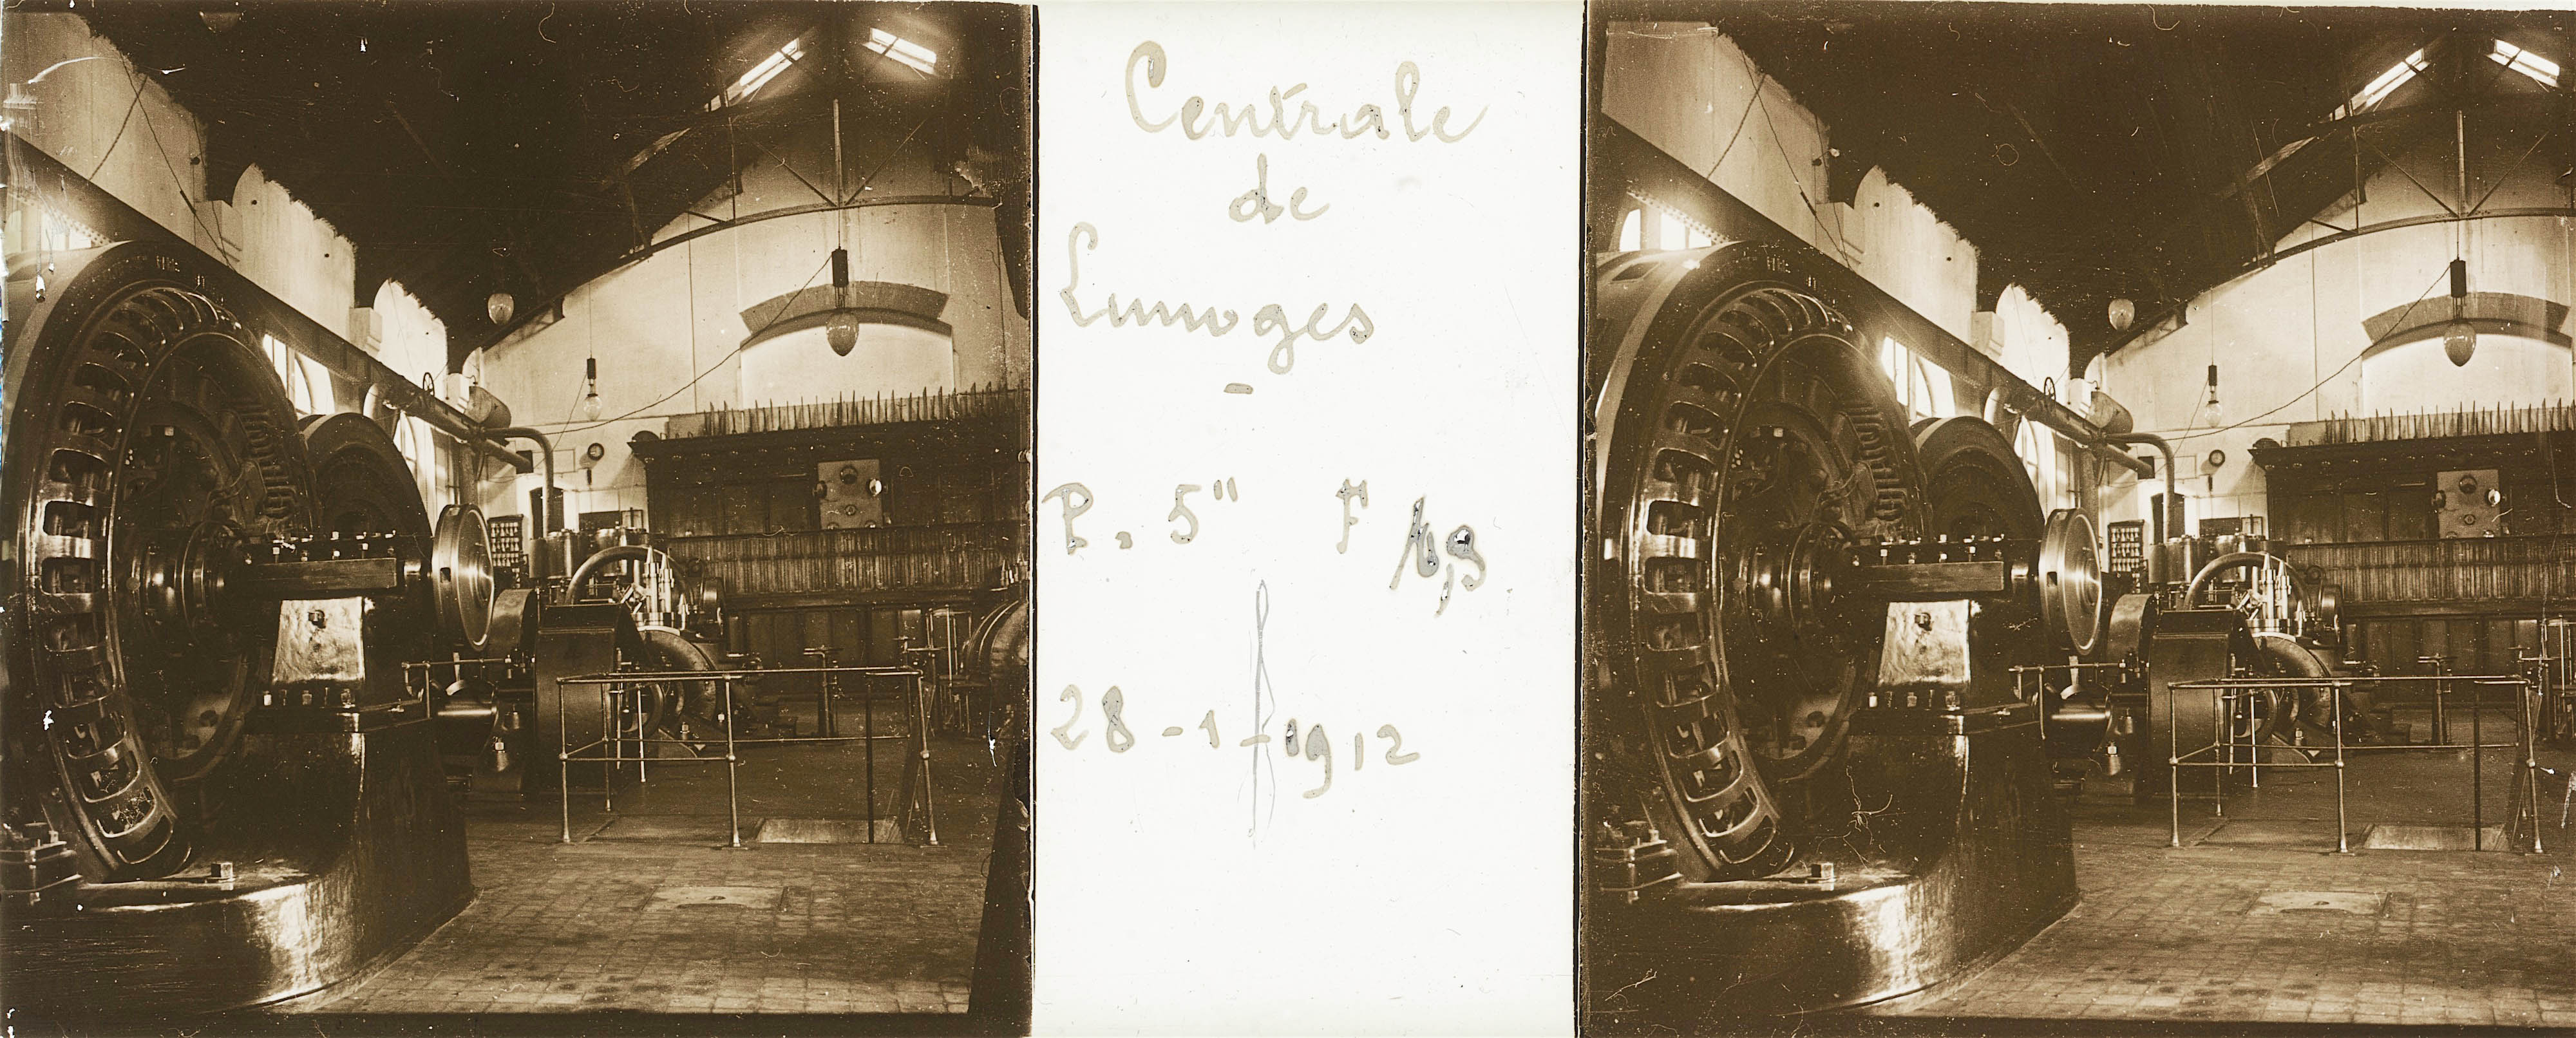 Centrale
de
Limoges
-
P. 5" F
28-1-1912